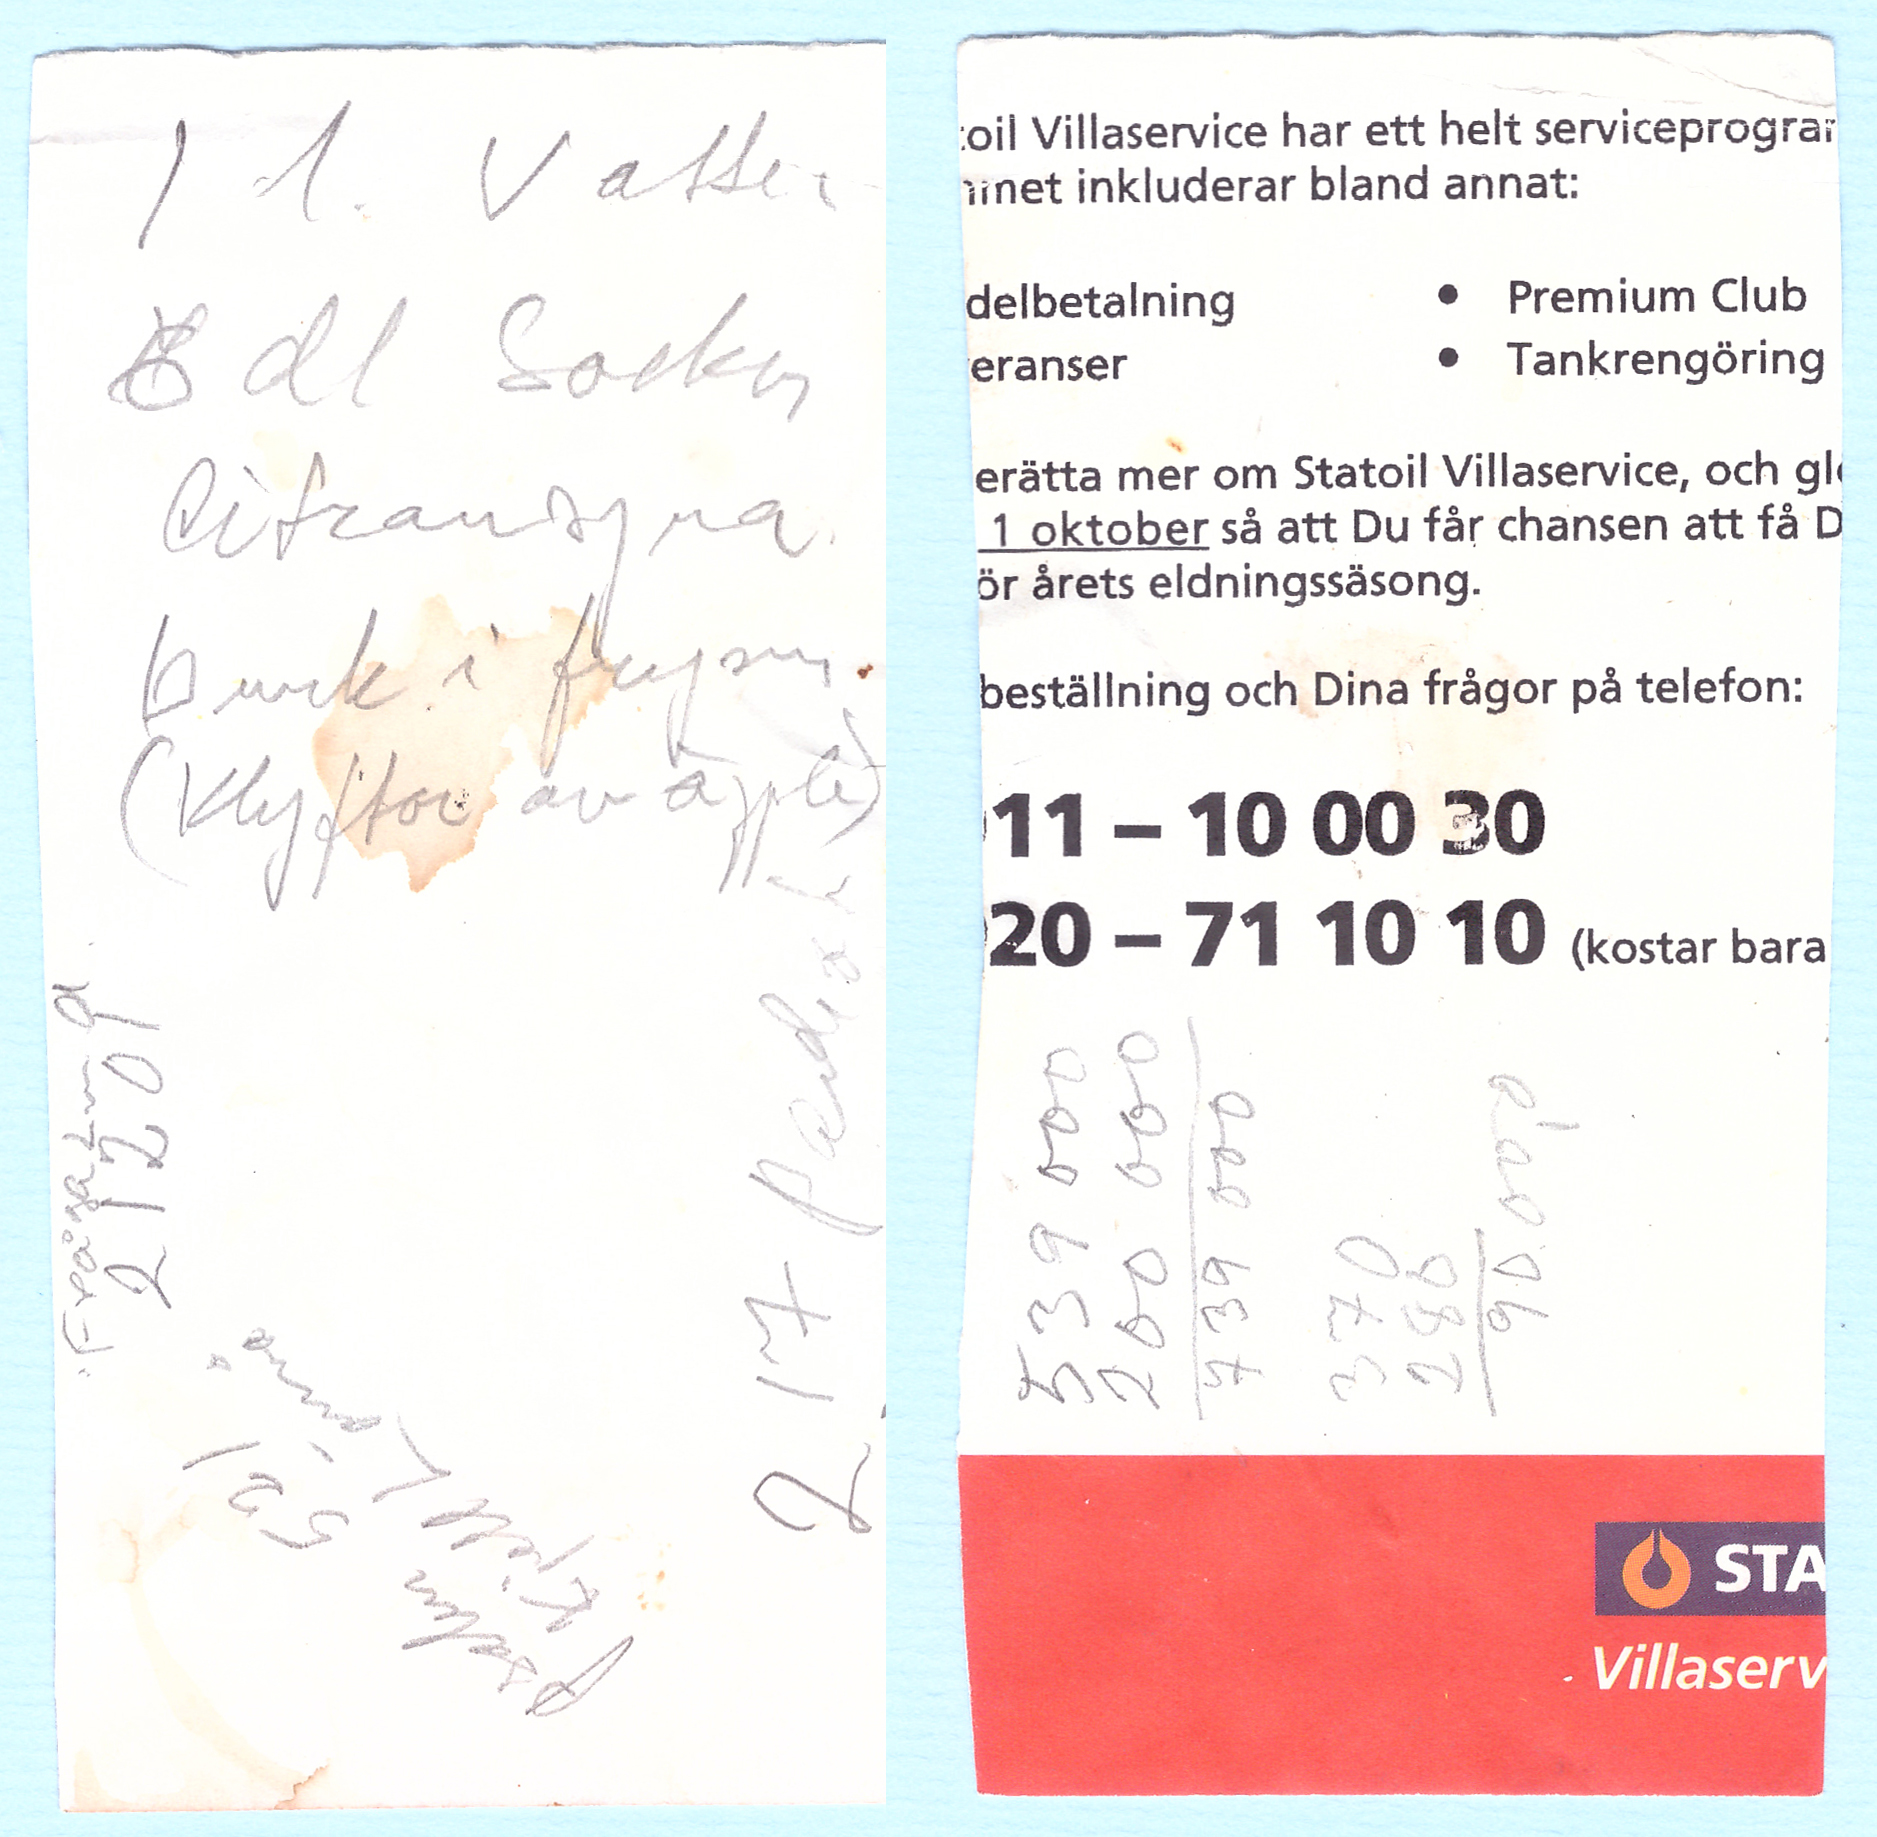 1 l. Vatten
8 dl Socker
Citronsyra
burk i frysen.
(Klyftor av äpple)
217
2120 g
Kjell
50,
toil Villaservice har ett helt serviceprogram
mnet inkluderar bland annat:
delbetalning • Premium Club
eranser • Tankrengöring
erätta mer om Statoil Villaservice, och gl
1 oktober så att Du får chansen att få D
ör årets eldningssäsong.
beställning och Dina frågor på telefon:
011 – 10 00 30
020 – 71 10 10 (kostar bara
539 000
200 000
739 000
370
280
90
STA
Villaserv